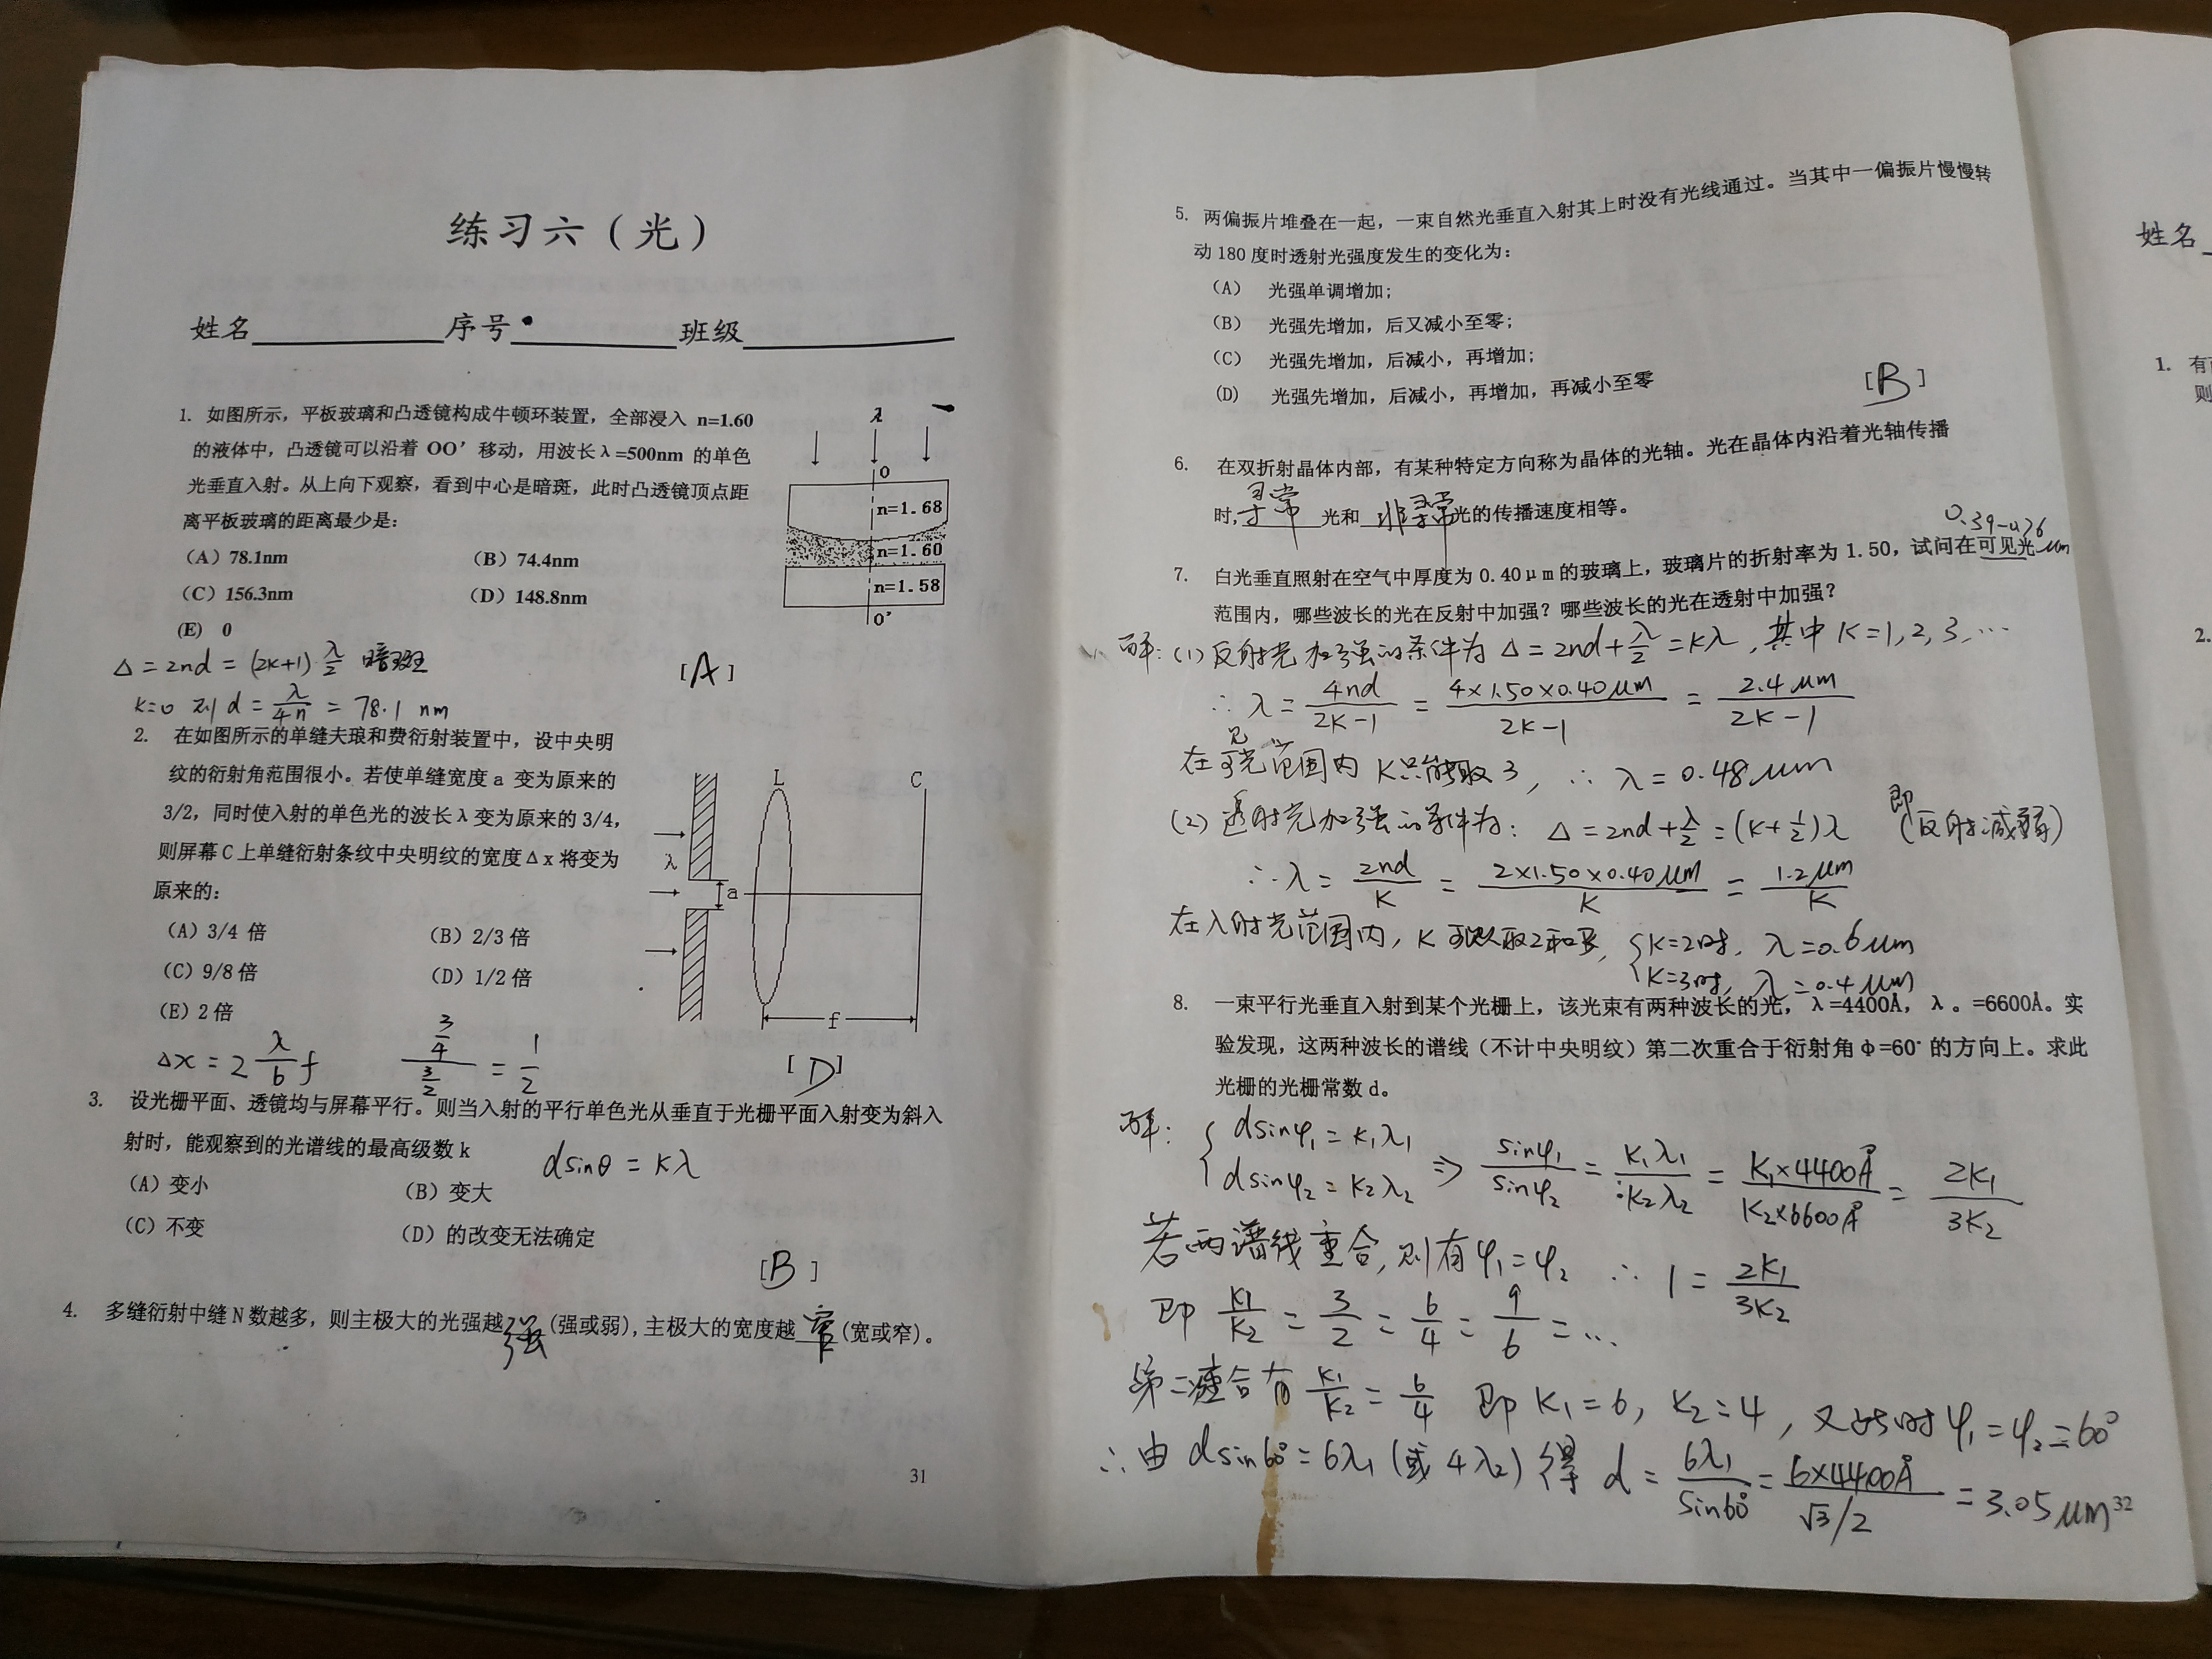 练习六（光）
姓名 序号 班级
1. 如图所示，平板玻璃和凸透镜构成牛顿环装置，全部浸入 n=1.60
的液体中，凸透镜可以沿着 OO’移动，用波长λ=500nm 的单色
光垂直入射。从上向下观察，看到中心是暗斑，此时凸透镜顶点距
离平板玻璃的距离最少是：
（A）78.1nm （B）74.4nm
（C）156.3nm （D）148.8nm
(E) 0
λ
O
n=1.68
n=1.60
n=1.58
O'
Δ = 2nd = (2k+1)·λ/2 暗斑
[A]
k=0 则 d = λ/4n = 78.1 nm
2. 在如图所示的单缝夫琅和费衍射装置中，设中央明
纹的衍射角范围很小。若使单缝宽度 a 变为原来的
3/2，同时使入射的单色光的波长λ变为原来的 3/4，
则屏幕 C 上单缝衍射条纹中央明纹的宽度Δx 将变为
原来的：
（A）3/4 倍 （B）2/3 倍
（C）9/8 倍 （D）1/2 倍
（E）2 倍
L
C
λ
a
f
Δx = 2 λ/b f (3/4)/(3/2) = 1/2
[D]
3. 设光栅平面、透镜均与屏幕平行。则当入射的平行单色光从垂直于光栅平面入射变为斜入
射时，能观察到的光谱线的最高级数 k
dsinθ = kλ
（A）变小 （B）变大
（C）不变 （D）的改变无法确定
[B]
4. 多缝衍射中缝 N 数越多，则主极大的光强越强(强或弱)，主极大的宽度越窄(宽或窄)。
31
5. 两偏振片堆叠在一起，一束自然光垂直入射其上时没有光线通过。当其中一偏振片慢慢转
动 180 度时透射光强度发生的变化为：
（A） 光强单调增加；
（B） 光强先增加，后又减小至零；
（C） 光强先增加，后减小，再增加；
(D) 光强先增加，后减小，再增加，再减小至零
[B]
6. 在双折射晶体内部，有某种特定方向称为晶体的光轴。光在晶体内沿着光轴传播
时，寻常光和非寻常光的传播速度相等。
0.39-0.76
μm
7. 白光垂直照射在空气中厚度为 0.40μm 的玻璃上，玻璃片的折射率为 1.50，试问在可见光
范围内，哪些波长的光在反射中加强？哪些波长的光在透射中加强？
解：(1) 反射光加强的条件为 Δ = 2nd + λ/2 = kλ，其中 k=1,2,3,…
∴ λ = 4nd/(2k-1) = 4×1.50×0.40μm/(2k-1) = 2.4μm/(2k-1)
在可见光范围内 k只能取3，∴ λ = 0.48μm
(2) 透射光加强的条件为：Δ = 2nd + λ/2 = (k+1/2)λ 即(反射减弱)
∴ λ = 2nd/k = 2×1.50×0.40μm/k = 1.2μm/k
在入射光范围内，k可以取2和3，{k=2时，λ=0.6μm
k=3时，λ=0.4μm
8. 一束平行光垂直入射到某个光栅上，该光束有两种波长的光，λ=4400Å，λ。=6600Å。实
验发现，这两种波长的谱线（不计中央明纹）第二次重合于衍射角Φ=60°的方向上。求此
光栅的光栅常数 d。
解：{dsinφ₁ = k₁λ₁
dsinφ₂ = k₂λ₂ ⇒ sinφ₁/sinφ₂ = k₁λ₁/k₂λ₂ = k₁×4400Å/k₂×6600Å = 2k₁/3k₂
若两谱线重合，则有φ₁=φ₂ ∴ 1 = 2k₁/3k₂
即 k₁/k₂ = 3/2 = 6/4 = 9/6 = …
第二次重合有 k₁/k₂ = 6/4 即 k₁=6, k₂=4，又此时φ₁=φ₂=60°
∴由 dsin60°=6λ₁(或 4λ₂) 得 d = 6λ₁/sin60° = 6×4400Å/(√3/2) = 3.05μm
32
姓名
1. 有
则
2.